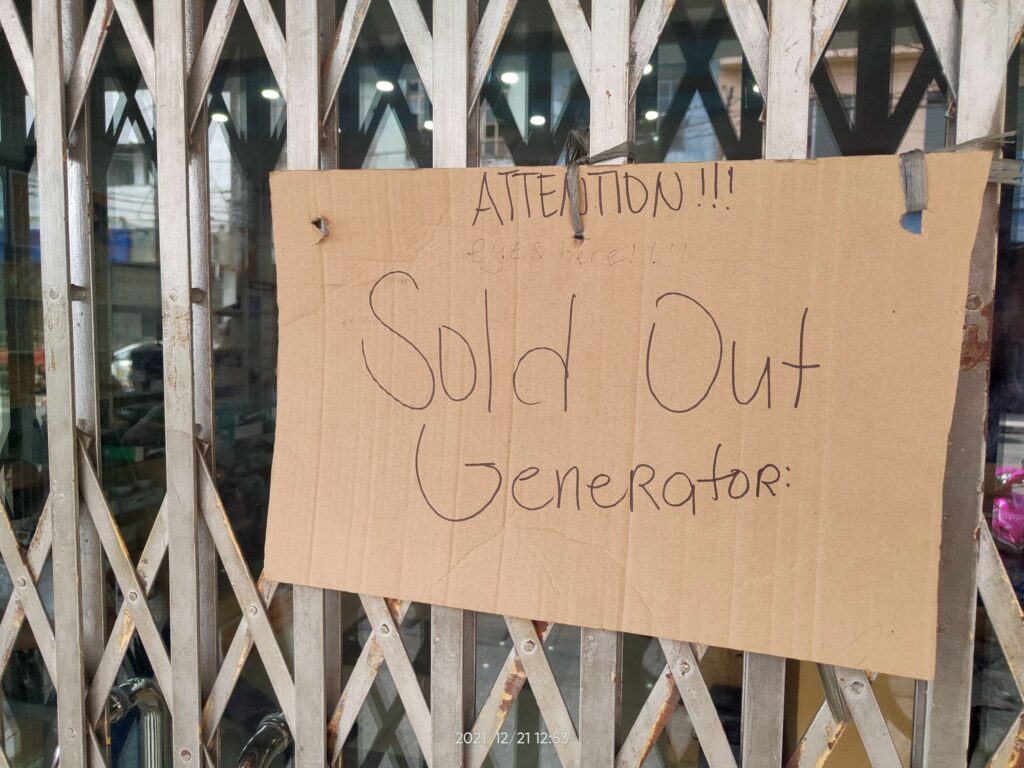 ATTENTION!!!
eyes here!!!!
Sold Out
Generator:
2021/12/21 12:53